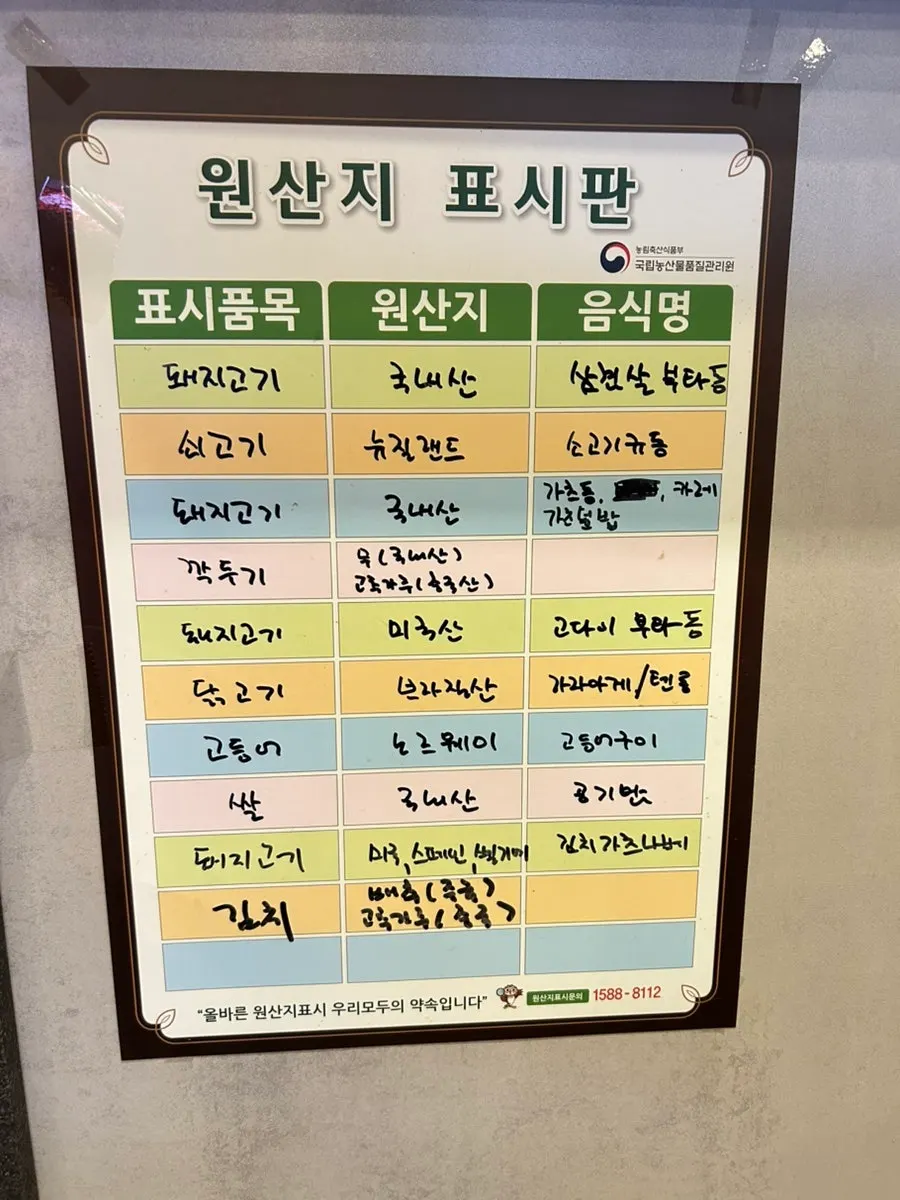 원산지 표시판
농림축산식품부
국립농산물품질관리원
표시품목 원산지 음식명
돼지고기 국내산 삼겹살 부타동
쇠고기 뉴질랜드 소고기규동
돼지고기 국내산 가츠동, , 카레
가츠덮밥
깍두기 무(국내산)
고춧가루(중국산)
돼지고기 미국산 고다이 부타동
닭고기 브라질산 가라아게/텐동
고등어 노르웨이 고등어구이
쌀 국내산 공기밥
돼지고기 미국, 스페인, 벨기에 김치가츠나베
김치 배추(중국)
고춧가루(중국)
“올바른 원산지표시 우리모두의 약속입니다”
원산지표시문의 1588-8112